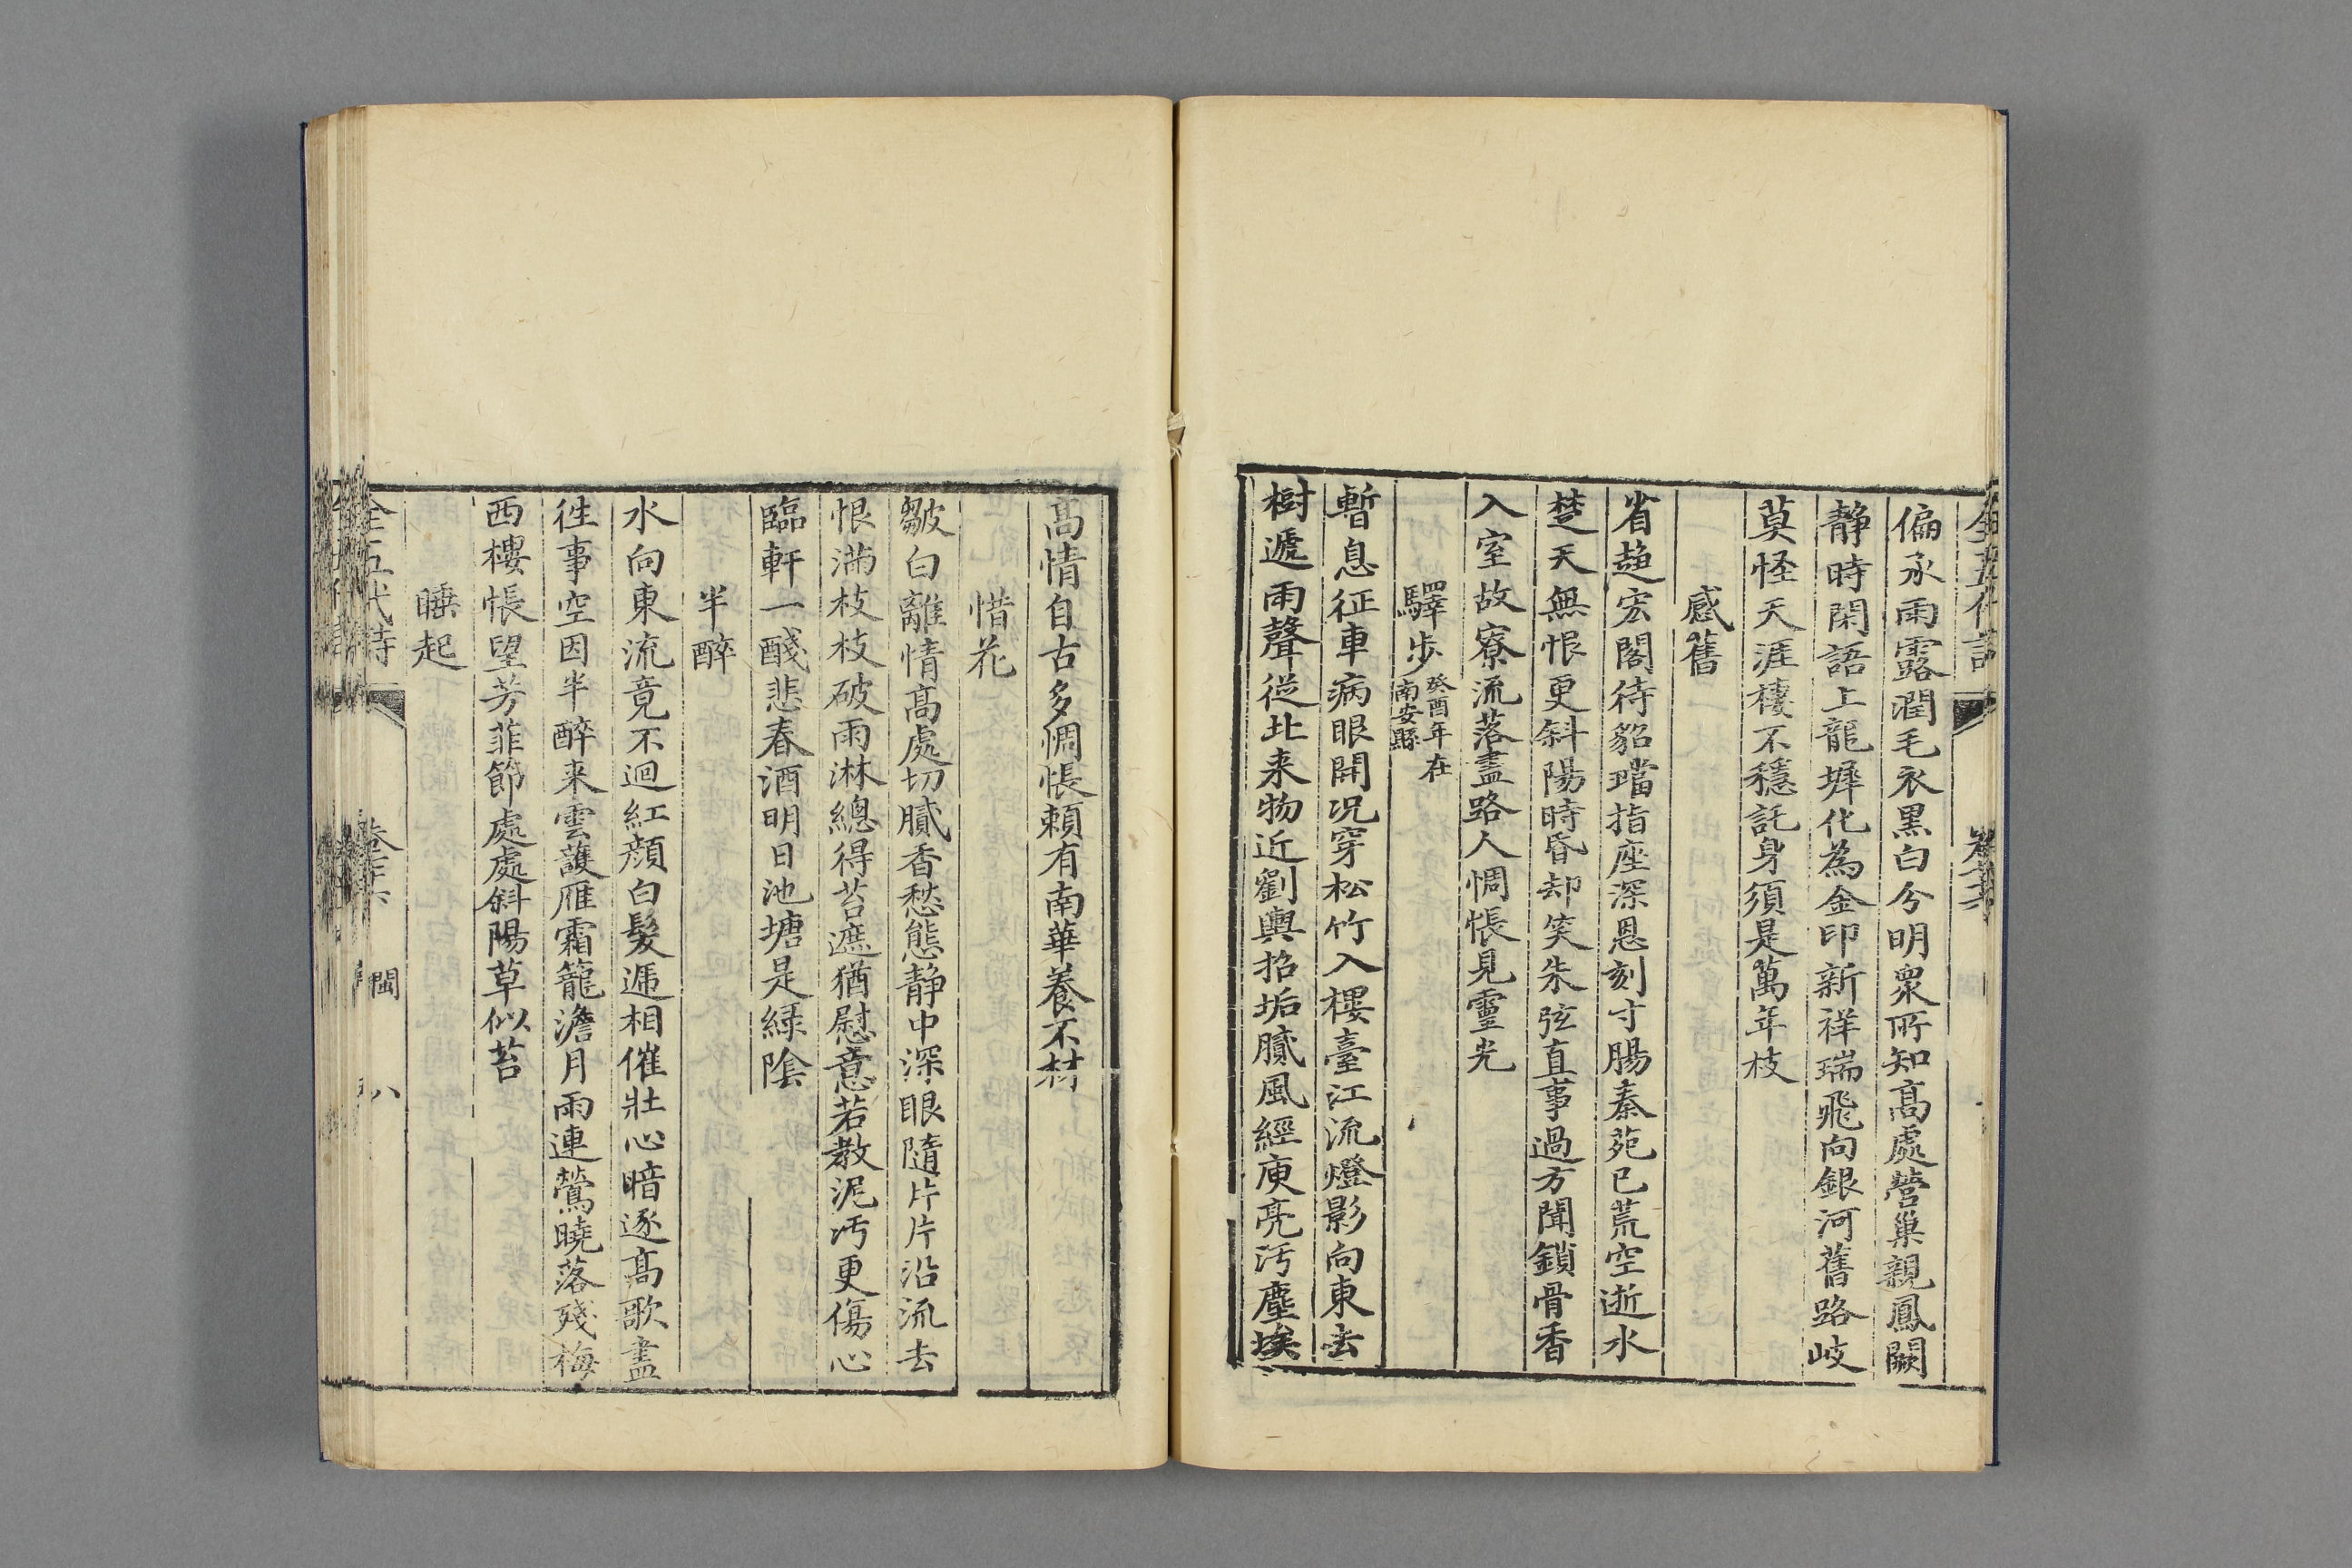 全五代詩
偏承雨露潤毛衣黒白分明衆所知髙處營巢親鳳闕
靜時閑語上龍墀化為金印新祥瑞飛向銀河舊路岐
莫怪天涯棲不穩託身須是萬年枝
感舊
省趨宏閣待貂璫指座深恩刻寸腸秦苑已荒空逝水
楚天無恨更斜陽時昏却笑朱弦直事過方聞鎖骨香
入室故寮流落盡路人惆悵見靈光
驛步癸酉年在南安縣
暫息征車病眼開况穿松竹入樓臺江流燈影向東去
樹遞雨聲從北来物近劉輿招垢膩風經庾亮汚塵埃
髙情自古多惆悵賴有南華養不材
惜花
皺白離情髙處切膩香愁態靜中深眼隨片片沿流去
恨滿枝枝破雨淋總得苔遮猶慰意若教泥汚更傷心
臨軒一醆悲春酒明日池塘是緑陰
半醉
水向東流竟不迴紅顔白髪遞相催壯心暗逐髙歌盡
徃事空因半醉来雲護雁霜籠澹月雨連鶯曉落殘梅
西樓悵望芳菲節處處斜陽草似苔
睡起
全五代詩
閩
八